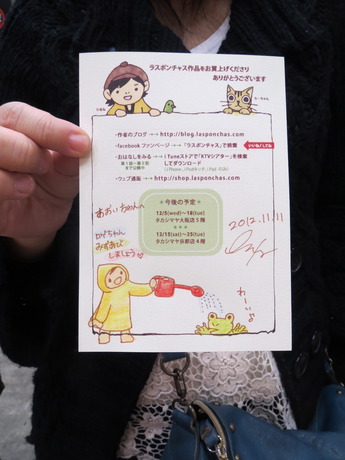 ラスポンチャス作品をお買上げくださり
ありがとうございます
・作者のブログ →→ http://blog.lasponchas.com
・facebook ファンページ →→ 「ラスポンチャス」で検索 いいね!してね
・おはなしをみる →→ iTuneストアで「KTVシアター」を検索
してダウンロード
・ウェブ通販 →→ http://shop.lasponchas.com
★ 今後の予定 ★
12/5(wed)〜18(tue)
タカシマヤ大阪店5階
★★★
12/15(sat)〜25(tue)
タカシマヤ京都店4階
2012.11.11
みずあび
しましょう
わーい♪